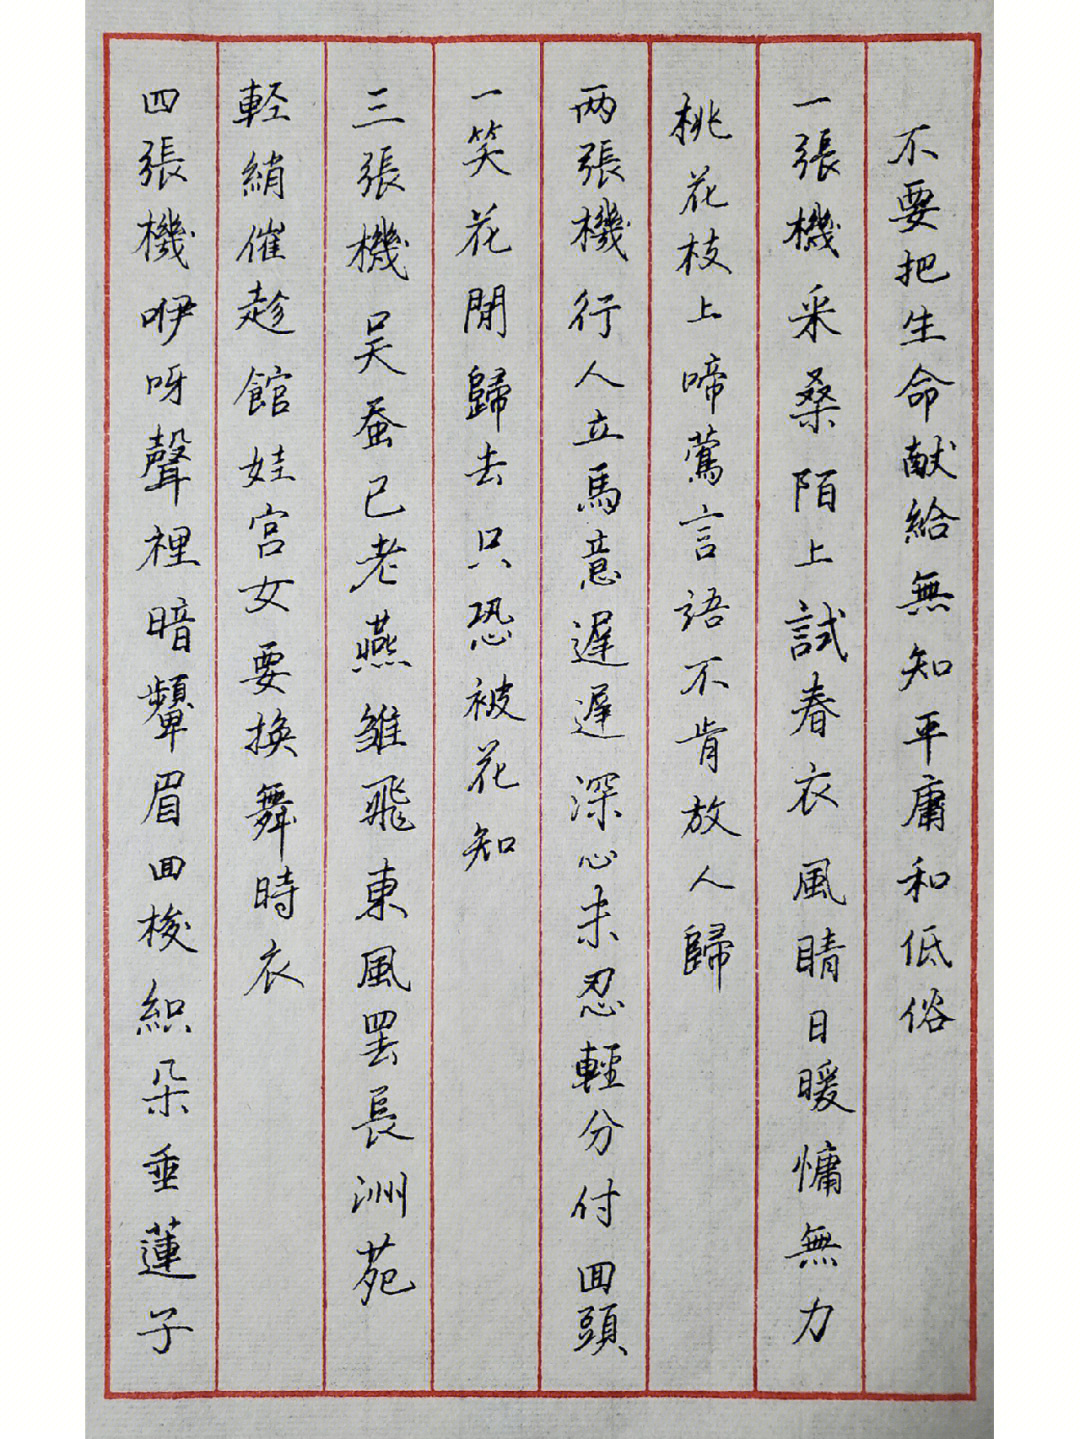 不要把生命献給無知平庸和低俗
一張機采桑陌上試春衣風晴日暖慵無力
桃花枝上啼鶯言語不肯放人歸
两張機行人立馬意遲遲深心未忍輕分付囬頭
一笑花間歸去只恐被花知
三張機吴蚕已老燕雛飛東風罢長洲苑
輕綃催趁館娃宫女要換舞時衣
四張機咿呀聲裡暗顰眉囬梭織朵垂蓮子